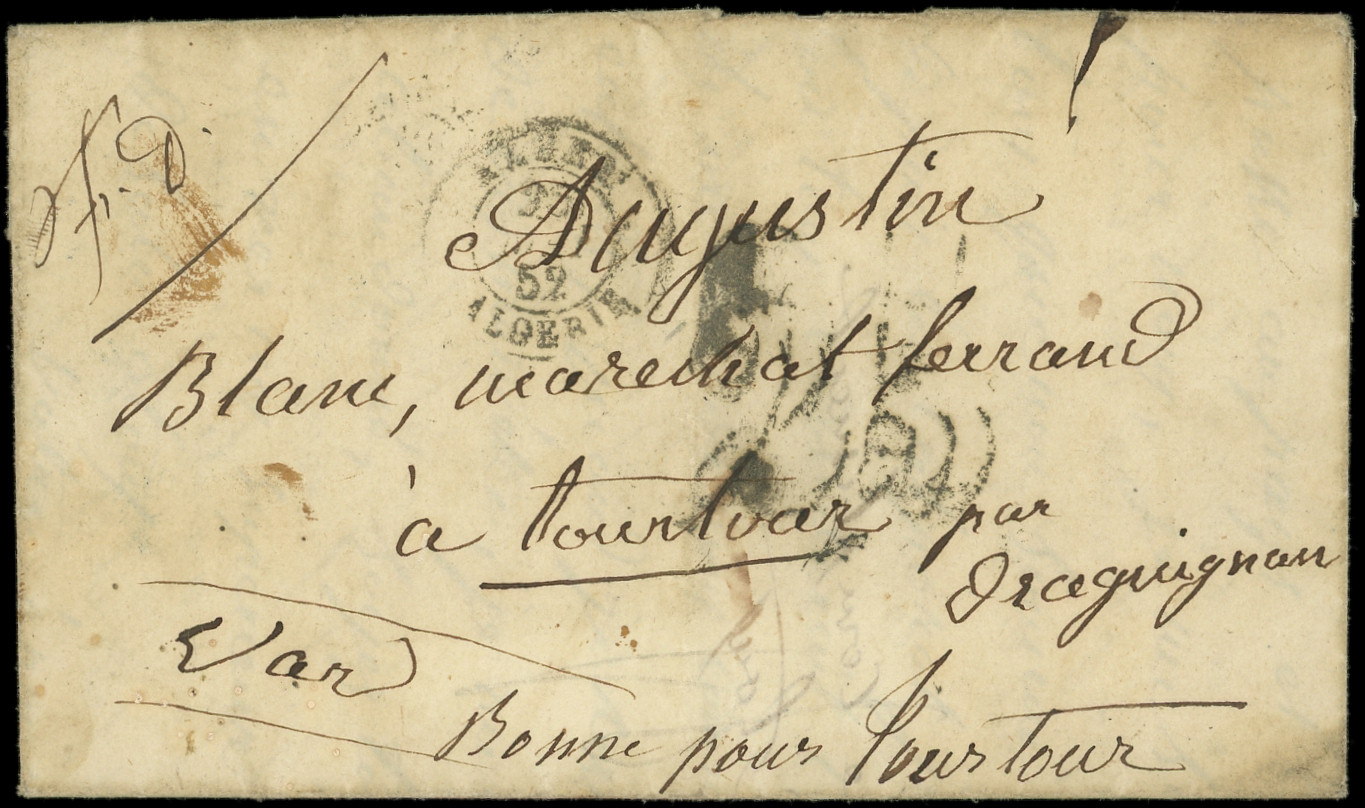 Augustin
Blanc, marechal ferrand
à tourtour par
Draguignan
Var
Bonne pour tourtour
52
ALGERIE